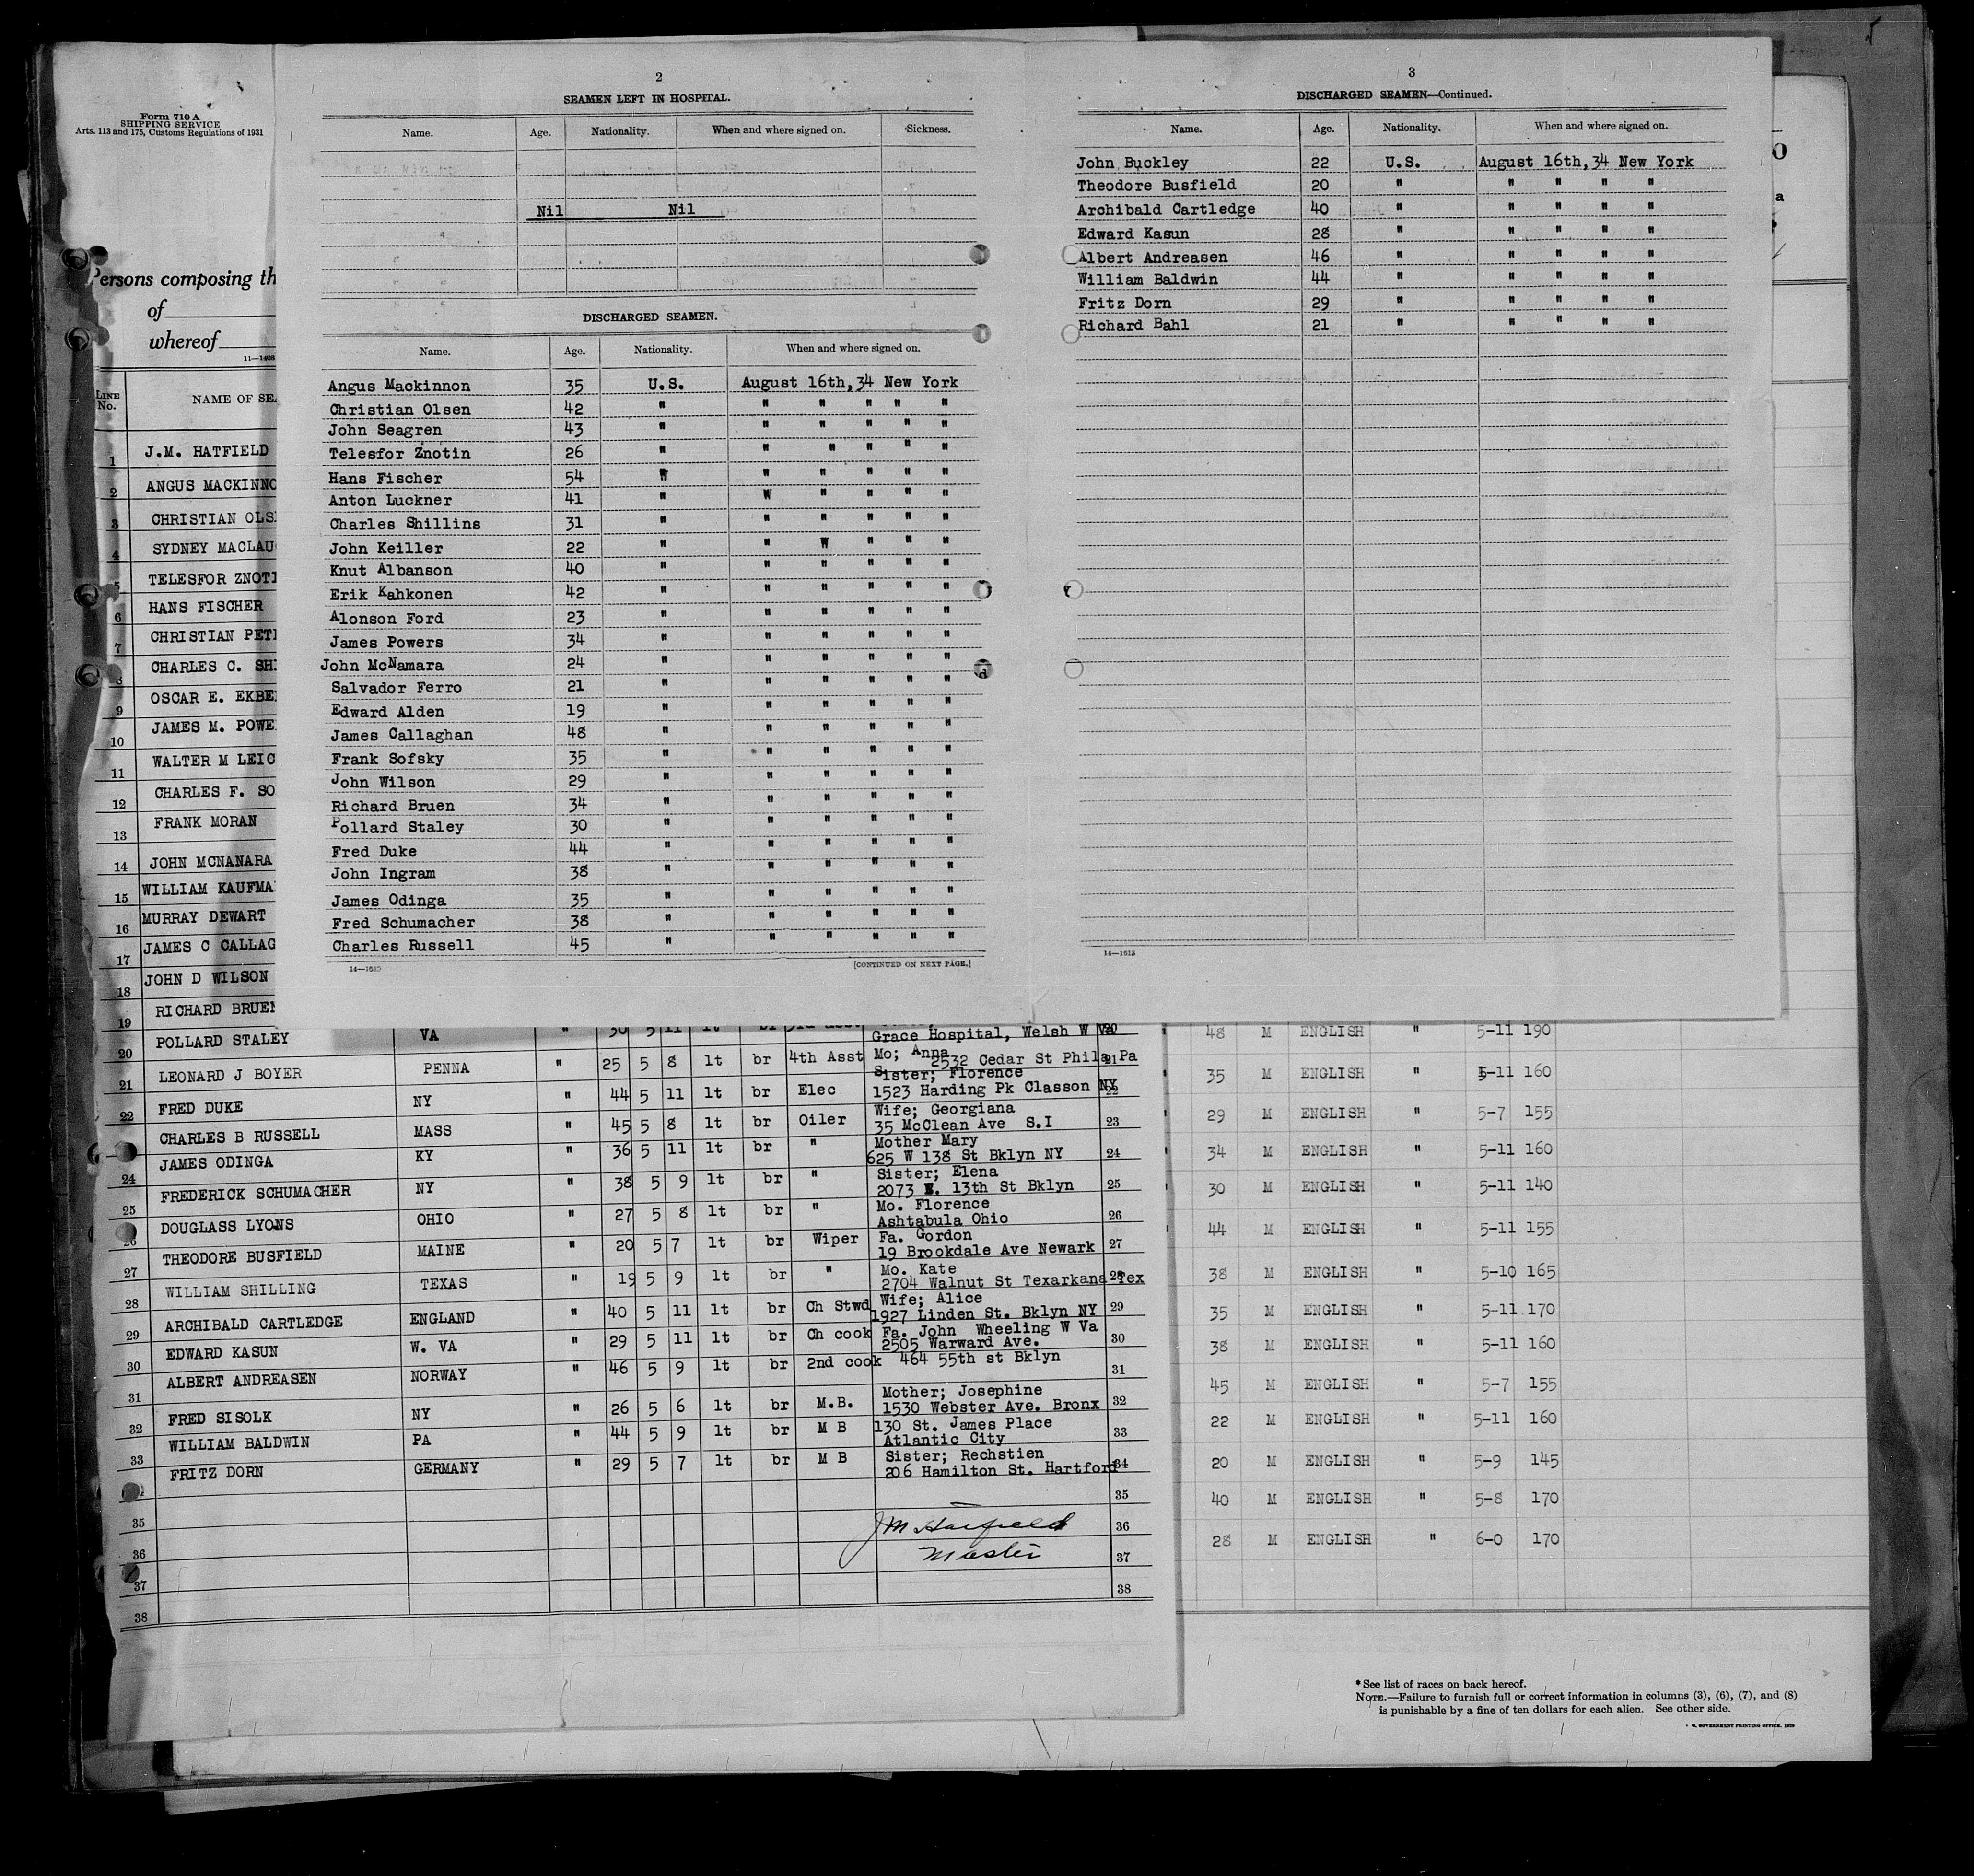 Form 710 A
SHIPPING SERVICE
Arts. 113 and 175, Customs Regulations of 1931
Persons composing th
of
whereof
11—1408
LINE No. NAME OF SEA
1 J.M. HATFIELD
2 ANGUS MACKINNO
3 CHRISTIAN OLS
4 SYDNEY MACLAU
5 TELESFOR ZNOTI
6 HANS FISCHER
7 CHRISTIAN PETE
8 CHARLES C. SHI
9 OSCAR E. EKBE
10 JAMES M. POWE
11 WALTER M LEIC
12 CHARLES F. SO
13 FRANK MORAN
14 JOHN MCNANARA
15 WILLIAM KAUFMA
16 MURRAY DEWART
17 JAMES C CALLAG
18 JOHN D WILSON
19 RICHARD BRUEN
2
SEAMEN LEFT IN HOSPITAL.
Name. Age. Nationality. When and where signed on. Sickness.
Nil Nil
DISCHARGED SEAMEN.
Name. Age. Nationality. When and where signed on.
Angus Mackinnon 35 U.S. August 16th,34 New York
Christian Olsen 42 " " " " " "
John Seagren 43 " " " " " "
Telesfor Znotin 26 " " " " " "
Hans Fischer 54 " " " " " "
Anton Luckner 41 " " " " " "
Charles Shillins 31 " " " " " "
John Keiller 22 " " " " " "
Knut Albanson 40 " " " " " "
Erik Kahkonen 42 " " " " " "
Alonson Ford 23 " " " " " "
James Powers 34 " " " " " "
John McNamara 24 " " " " " "
Salvador Ferro 21 " " " " " "
Edward Alden 19 " " " " " "
James Callaghan 48 " " " " " "
Frank Sofsky 35 " " " " " "
John Wilson 29 " " " " " "
Richard Bruen 34 " " " " " "
Pollard Staley 30 " " " " " "
Fred Duke 44 " " " " " "
John Ingram 38 " " " " " "
James Odinga 35 " " " " " "
Fred Schumacher 38 " " " " " "
Charles Russell 45 " " " " " "
14—1613 [CONTINUED ON NEXT PAGE.]
3
DISCHARGED SEAMEN—Continued.
Name. Age. Nationality. When and where signed on.
John Buckley 22 U.S. August 16th,34 New York
Theodore Busfield 20 " " " " "
Archibald Cartledge 40 " " " " "
Edward Kasun 28 " " " " "
Albert Andreasen 46 " " " " "
William Baldwin 44 " " " " "
Fritz Dorn 29 " " " " "
Richard Bahl 21 " " " " "
14—1613
Grace Hospital, Welsh W Va
20 POLLARD STALEY VA " 30 5 11 lt br 20
Mo; Anna
21 LEONARD J BOYER PENNA " 25 5 8 lt br 4th Asst 2532 Cedar St Phila Pa 21
Sister; Florence
22 FRED DUKE NY " 44 5 11 lt br Elec 1523 Harding Pk Classon NY 22
Wife; Georgiana
23 CHARLES B RUSSELL MASS " 45 5 8 lt br Oiler 35 McClean Ave S.I 23
Mother Mary
24 JAMES ODINGA KY " 36 5 11 lt br " 625 W 138 St Bklyn NY 24
Sister; Elena
25 FREDERICK SCHUMACHER NY " 38 5 9 lt br " 2073 E. 13th St Bklyn 25
Mo. Florence
26 DOUGLASS LYONS OHIO " 27 5 8 lt br " Ashtabula Ohio 26
Fa. Gordon
27 THEODORE BUSFIELD MAINE " 20 5 7 lt br Wiper 19 Brookdale Ave Newark 27
Mo. Kate
28 WILLIAM SHILLING TEXAS " 19 5 9 lt br " 2704 Walnut St Texarkana Tex 28
Wife; Alice
29 ARCHIBALD CARTLEDGE ENGLAND " 40 5 11 lt br Ch Stwd 1927 Linden St. Bklyn NY 29
Fa. John Wheeling W Va
30 EDWARD KASUN W. VA " 29 5 11 lt br Ch cook 2505 Warward Ave. 30
31 ALBERT ANDREASEN NORWAY " 46 5 9 lt br 2nd cook 464 55th st Bklyn 31
Mother; Josephine
32 FRED SISOLK NY " 26 5 6 lt br M.B. 1530 Webster Ave. Bronx 32
130 St. James Place
33 WILLIAM BALDWIN PA " 44 5 9 lt br M B Atlantic City 33
Sister; Rechstien
FRITZ DORN GERMANY " 29 5 7 lt br M B 206 Hamilton St. Hartford 34
35 35
36 J M Hatfield 36
37 Master 37
38 38
48 M ENGLISH " 5-11 190
35 M ENGLISH " 5-11 160
29 M ENGLISH " 5-7 155
34 M ENGLISH " 5-11 160
30 M ENGLISH " 5-11 140
44 M ENGLISH " 5-11 155
38 M ENGLISH " 5-10 165
35 M ENGLISH " 5-11 170
38 M ENGLISH " 5-11 160
45 M ENGLISH " 5-7 155
22 M ENGLISH " 5-11 160
20 M ENGLISH " 5-9 145
40 M ENGLISH " 5-8 170
28 M ENGLISH " 6-0 170
* See list of races on back hereof.
NOTE.—Failure to furnish full or correct information in columns (3), (6), (7), and (8)
is punishable by a fine of ten dollars for each alien. See other side.
GOVERNMENT PRINTING OFFICE